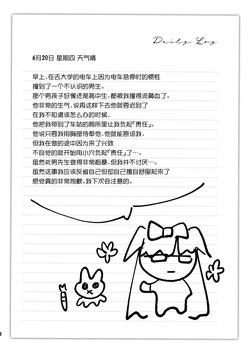 Daily Log
6月20日 星期四 天气晴
早上，在去大学的电车上因为电车急停时的惯性
撞到了一个不认识的男生。
那个男孩子好像还是高中生，都被我撞得流鼻血了。
他非常的生气，说再这样下去他就要迟到了
在我不知道该怎么办的时候，
他把我带到了车站的厕所里让我负起「责任」了…。
他说只要我用胸部侍奉他，他就能原谅我，
但我在做的途中因为来了兴致
不由自他的就开始用小穴负起「责任」了…
虽然处男先生做得非常粗暴，但我并不讨厌…。
虽然这事我应该反省自己但却自己擅自舒服起来了
感觉真的非常抱歉，我下次会注意的。